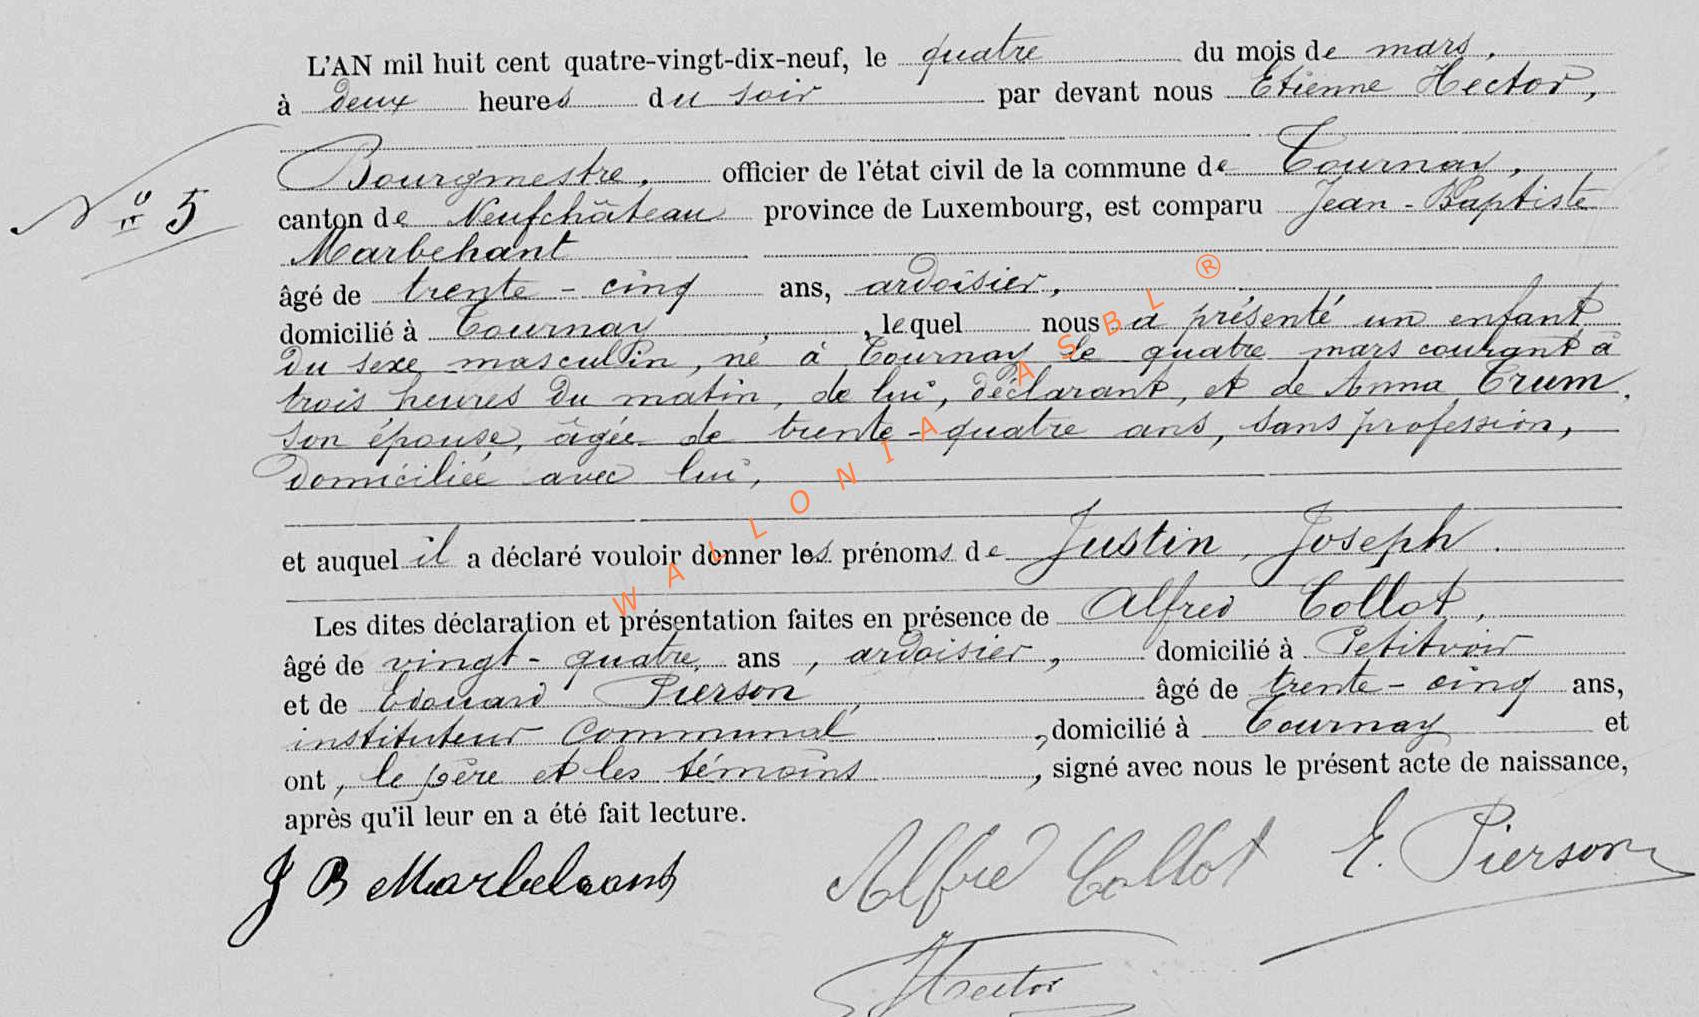 L'AN mil huit cent quatre-vingt-dix-neuf, le quatre du mois de mars,
à deux heures du soir par devant nous Etienne Hector,
Bourgmestre, officier de l'état civil de la commune de Tournay,
N° 5
canton de Neufchâteau province de Luxembourg, est comparu Jean-Baptiste
Marbehant
âgé de trente-cinq ans, ardoisier,
domicilié à Tournay, lequel nous a présenté un enfant
du sexe masculin, né à Tournay le quatre mars courant à
trois heures du matin, de lui, déclarant, et de Anna Crum,
son épouse, âgée de trente-quatre ans, sans profession,
domiciliée avec lui,
et auquel il a déclaré vouloir donner les prénoms de Justin, Joseph.
Les dites déclaration et présentation faites en présence de Alfred Collot,
âgé de vingt-quatre ans, ardoisier, domicilié à Petitvoir
et de Edouard Pierson, âgé de trente-cinq ans,
instituteur communal, domicilié à Tournay et
ont, le père et les témoins, signé avec nous le présent acte de naissance,
après qu'il leur en a été fait lecture.
J B Marbehant Alfred Collot E. Pierson
Hector
WALLONIA ASBL ®